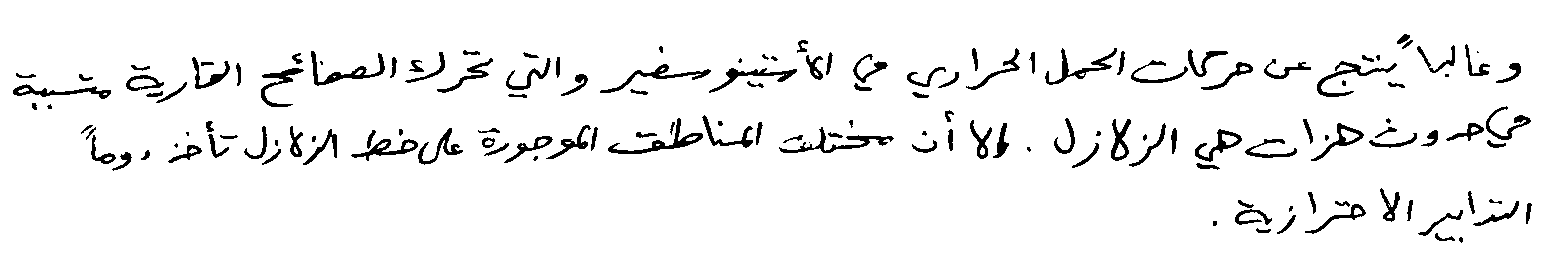 وغالباً ينتج عن حركات الحمل الحراري في الأستينوسفير والتي تحرك الصفائح القارية متسببة
في حدوث هزات هي الزلازل . إلا أن مختلف المناطق الموجودة على خط الزلازل تأخذ دوماً
التدابير الاحترازية .